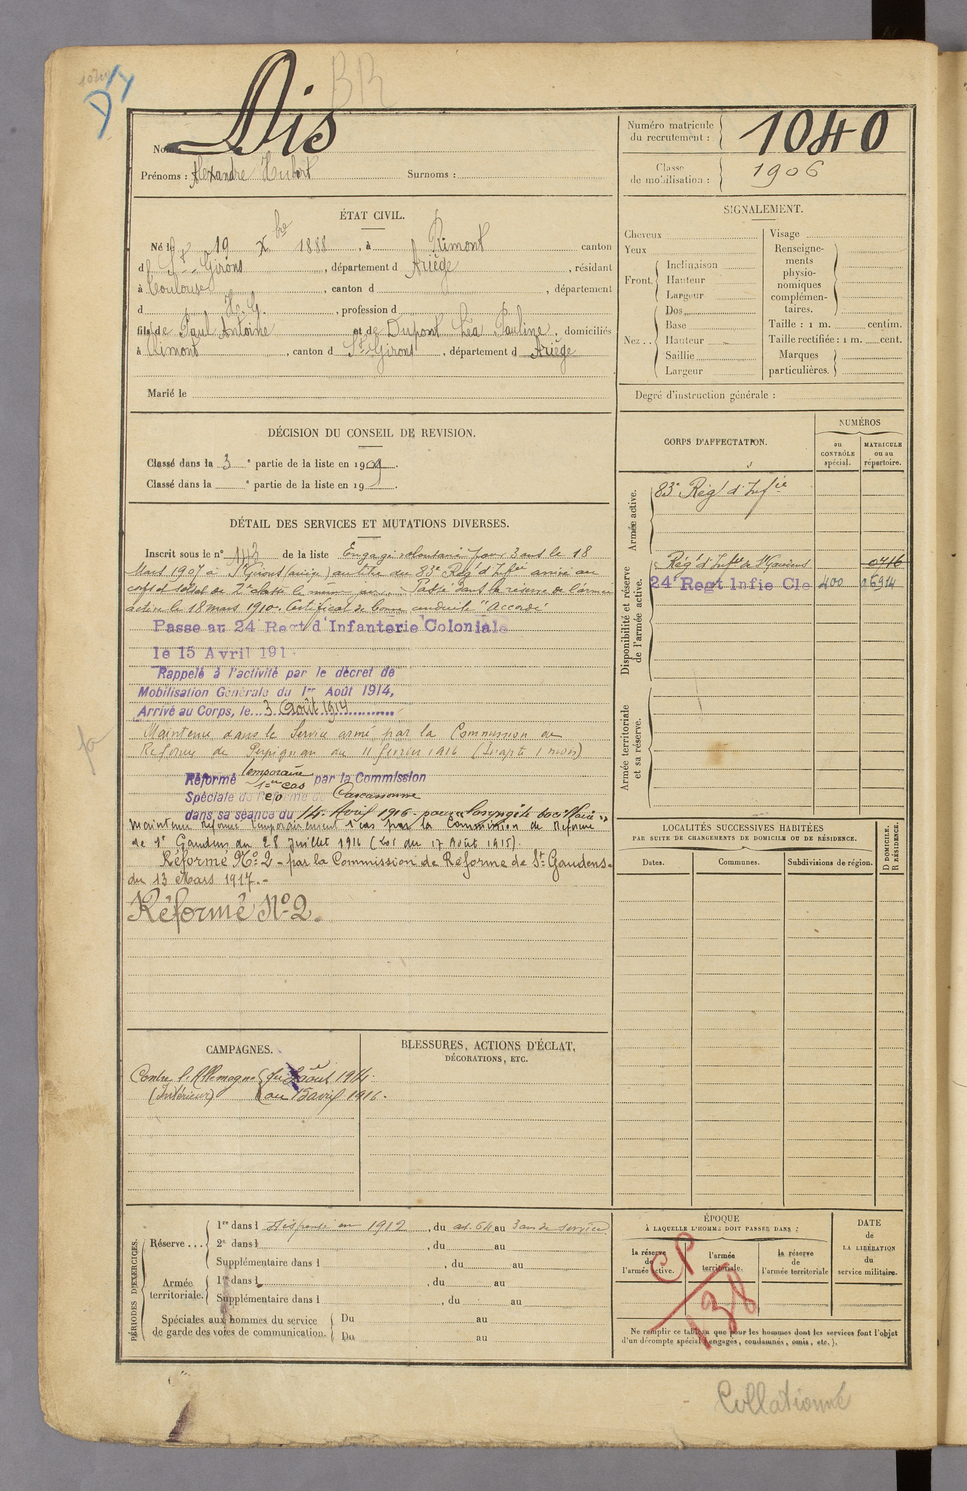 BR
Nom : Dis
Prénoms : Alexandre Hubert Surnoms :
Numéro matricule du recrutement : 1040
Classe de mobilisation : 1906
ÉTAT CIVIL.
Né le 19 Xbre 1888, à Rimont canton
d St-Girons, département d Ariège, résidant
à Toulouse, canton d , département
d H.G. , profession d
fils de Paul Antoine et de Dupont Léa Pauline, domiciliés
à Rimont, canton d St-Girons, département d Ariège
Marié le
SIGNALEMENT.
Cheveux
Yeux
Front. Inclinaison
Hauteur
Largeur
Nez . . Dos
Base
Hauteur
Saillie
Largeur
Visage
Renseigne-
ments
physio-
nomiques
complémen-
taires.
Taille : 1 m. centim.
Taille rectifiée : 1 m. cent.
Marques
particulières.
Degré d'instruction générale :
DÉCISION DU CONSEIL DE REVISION.
Classé dans la 3 e partie de la liste en 1909.
Classé dans la e partie de la liste en 19 .
DÉTAIL DES SERVICES ET MUTATIONS DIVERSES.
Inscrit sous le n° 143 de la liste Engagé volontaire pour 3 ans le 18
Mars 1907 à St Girons (Ariège) au titre du 83e Rég d'Infie arrivé au
corps et soldat de 2e classe le même jour. Passé dans la réserve de l'armée
active le 18 mars 1910. Certificat de bonne conduite "Accordé"
Passe au 24 Regt d'Infanterie Coloniale
le 15 Avril 191
Rappelé à l'activité par le décret de
Mobilisation Générale du 1er Août 1914,
Arrivé au Corps, le 3 Août 1914
Maintenu dans le Service armé par la Commission de
Réforme de Perpignan du 11 février 1916 (Inapte 1 mois)
Réformé temporaire 1er cas par la Commission
Spéciale de Réforme de Carcassonne
dans sa séance du 14 Avril 1916 - pour « laryngite bacillaire »
Maintenu Réformé temporairement 1er cas par la Commission de Réforme
de St Gaudens du 28 Juillet 1916 (Loi du 17 Août 1915).
Réformé No 2 - par la Commission de Réforme de St Gaudens -
du 13 Mars 1917. -
Réformé No 2.
CORPS D'AFFECTATION.
NUMÉROS
au CONTRÔLE spécial.
MATRICULE ou au répertoire.
Armée active.
83e Rég d'Infie
Disponibilité et réserve de l'armée active.
Rég d'Infie de St Gaudens 0716
24e Regt Infie Cle 400
Armée territoriale et sa réserve.
LOCALITÉS SUCCESSIVES HABITÉES
PAR SUITE DE CHANGEMENTS DE DOMICILE OU DE RÉSIDENCE.
Dates. Communes. Subdivisions de région.
D DOMICILE. R RÉSIDENCE.
CAMPAGNES.
Contre l'Allemagne du 3 août 1914
(Intérieur) au 15 avril 1916.
BLESSURES, ACTIONS D'ÉCLAT,
DÉCORATIONS, ETC.
PÉRIODES D'EXERCICES.
Réserve . . . 1re dans l Dispensé en 1912, du art. 64 au 3 ans de service
2e dans l , du au
Supplémentaire dans l , du au
Armée territoriale. 1re dans l , du au
Supplémentaire dans l , du au
Spéciales aux hommes du service
de garde des voies de communication. Du au
Du au
ÉPOQUE
À LAQUELLE L'HOMME DOIT PASSER DANS :
la réserve de l'armée active.
l'armée territoriale.
la réserve de l'armée territoriale
DATE de LA LIBÉRATION du service militaire.
CP
138
Ne remplir ce tableau que pour les hommes dont les services font l'objet
d'un décompte spécial (engagés, condamnés, omis, etc.).
Collationné